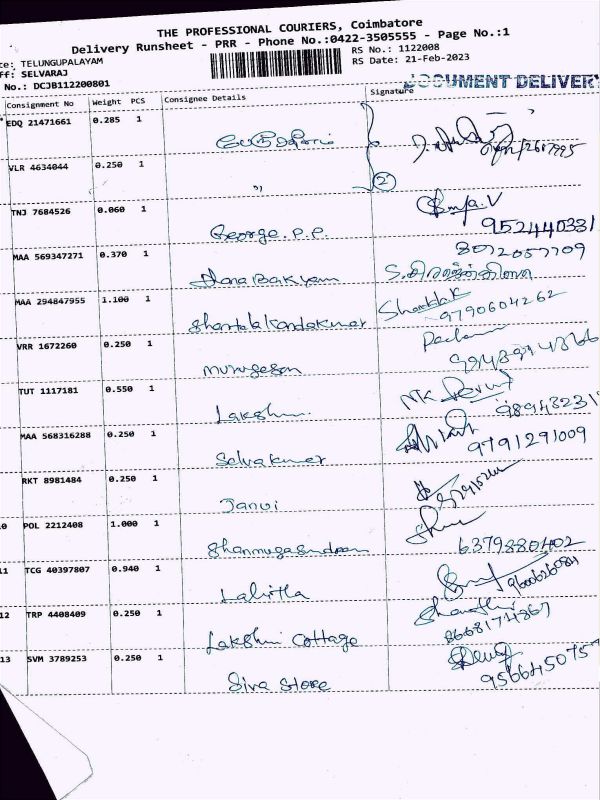 THE PROFESSIONAL COURIERS, Coimbatore
Delivery Runsheet - PRR - Phone No.:0422-3505555 - Page No.:1
te: TELUNGUPALAYAM RS No.: 1122008
ff: SELVARAJ RS Date: 21-Feb-2023
No.: DCJB112200801
DOCUMENT DELIVERY
Consignment No Weight PCS Consignee Details Signature
EDQ 21471661 0.285 1
VLR 4634044 0.250 1 〃 2
TNJ 7684526 0.060 1 George. P.P. 952440331
MAA 569347271 0.370 1 Dana Bakyam 8072057709
MAA 294847955 1.100 1 Shantala kandakumar 9790604262
VRR 1672260 0.250 1 murugesan
TUT 1117181 0.550 1 Lakshmi. 989443231
MAA 568316288 0.250 1 Selvakumar 9791291009
RKT 8981484 0.250 1 Janvi
10 POL 2212408 1.000 1 Shanmugasundaram 6379880402
11 TCG 40397807 0.940 1 Lalitha 9600626084
12 TRP 4408409 0.250 1 Lakshmi Cottage 8668174867
13 SVM 3789253 0.250 1 Siva Store 956645075